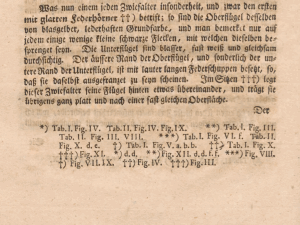 Was nun einen jeden Zwiefalter insonderheit, und zwar den ersten
mit glatten Federhörner ††) betrift: so sind die Oberflügel desselben
von blaßgelber, lederhaften Grundfarbe, und man bemerket nur auf
jedem einige wenige kleine schwarze Flecken, mit welchen dieselben be-
sprenget seyn. Die Unterflügel sind blasser, fast weiß und gleichsam
durchsichtig. Der äussere Rand der Oberflügel, und sonderlich der un-
tere Rand der Unterflügel, ist mit lauter langen Federschuppen besetzt, so,
daß sie daselbst ausgefranzet zu seyn scheinen. Im Sitzen †††) legt
dieser Zwiefalter seine Flügel hinten etwas übereinander, und trägt sie
übrigens ganz platt und nach einer fast gleichen Oberfläche.
Der
*) Tab. I. Fig. IV. Tab. II. Fig. IV. Fig. IX. **) Tab. I. Fig. III.
Tab. II. Fig. III. VIII. ***) Tab. I. Fig. VI. f. Tab. II.
Fig. X. d. e. †) Tab. I. Fig. V. a. b. b. ††) Tab. I. Fig. X.
†††) Fig. XI. *) d. d. **) Fig. XII. d. d. f. f. ***) Fig. VIII.
†) Fig. VII. IX. ††) Fig. IV. †††) Fig. III.